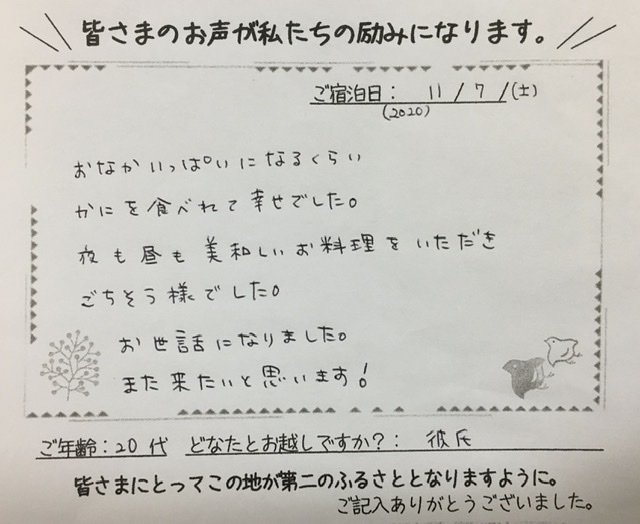 皆さまのお声が私たちの励みになります。
ご宿泊日： 11 / 7 /(土)
(2020)
おなかいっぱいになるくらい
かにを食べれて幸せでした。
夜も昼も美和しいお料理をいただき
ごちそう様でした。
お世話になりました。
また来たいと思います!
ご年齢：20代 どなたとお越しですか？： 彼氏
皆さまにとってこの地が第二のふるさととなりますように。
ご記入ありがとうございました。